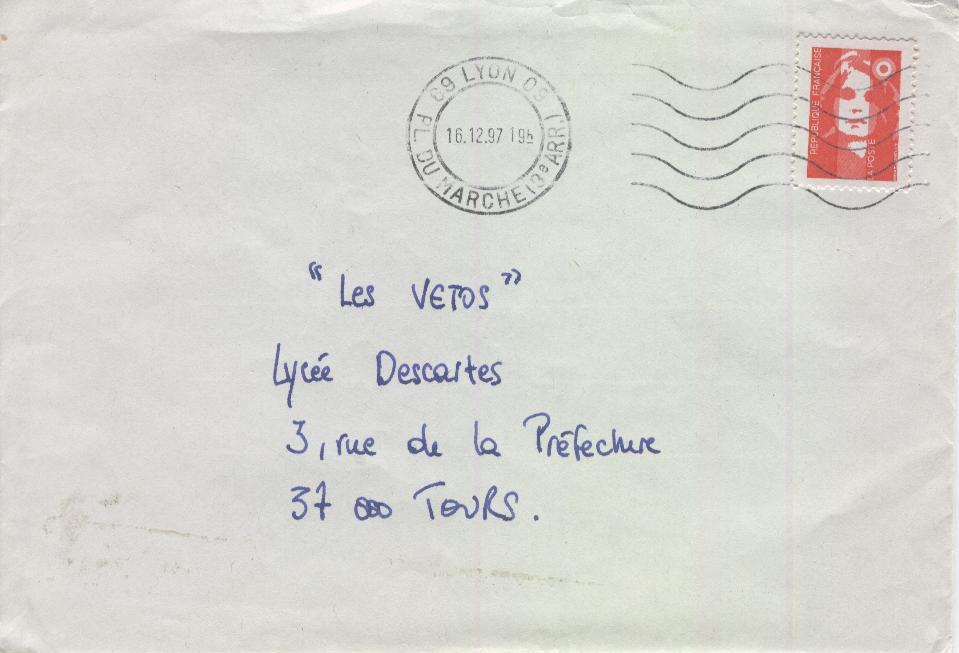 69 LYON 09 (ARR.)
PL. DU MARCHE (3e ARR.)
16.12.97 19h
RÉPUBLIQUE FRANÇAISE
LA POSTE
“Les VETOS”
Lycée Descartes
3, rue de la Préfecture
37 000 TOURS.